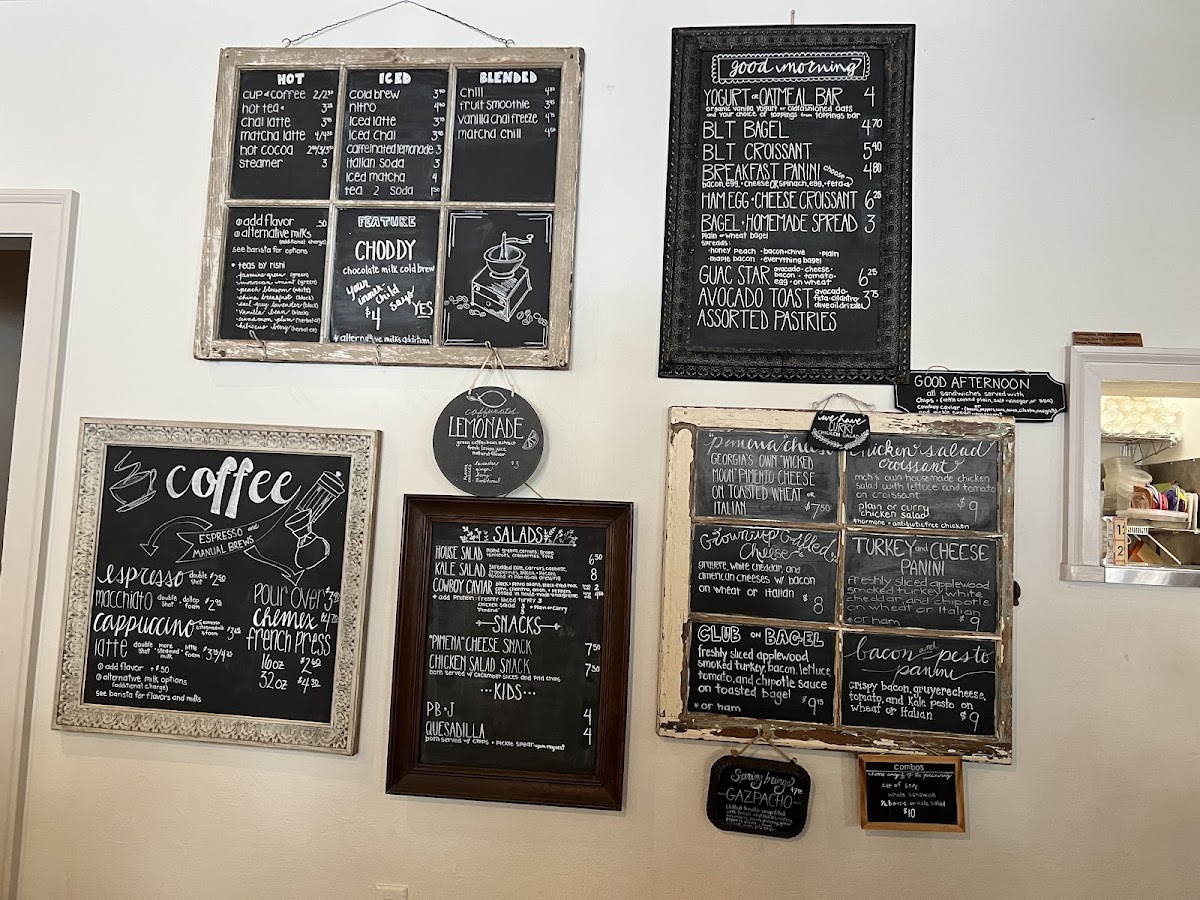 HOT
CUP of COFFEE
hot tea
chai latte
matcha latte
hot cocoa
steamer 3
ICED
cold brew
nitro
iced latte
iced chai
caffeinated lemonade 3
italian soda 3
iced matcha 4
tea 2 soda
BLENDED
chill
fruit smoothie
vanilla chai freeze
matcha chill
add flavor .50
alternative milks
(additional charge)
see barista for options
• teas by rishi
jasmine green (green)
moroccan mint (green)
peach blossom (white)
china breakfast (black)
earl grey lavender (black)
vanilla bean (black)
cinnamon plum
hibiscus berry
FEATURE
CHODDY
chocolate milk cold brew
your
inner
child
says YES
$4
alternative milks additional
good morning
YOGURT or OATMEAL BAR 4
organic vanilla yogurt or oldfashioned oats
and your choice of toppings from toppings bar
BLT BAGEL 4.70
BLT CROISSANT 5.40
BREAKFAST PANINI choose 4.80
bacon, egg + cheese OR spinach, egg, + feta
HAM EGG + CHEESE CROISSANT 6.25
BAGEL + HOMEMADE SPREAD 3
plain or wheat bagel
spreads:
•honey peach •bacon+chive •plain
•maple bacon •everything bagel
GUAC STAR avocado-cheese- bacon + tomato- egg-on wheat 6.25
AVOCADO TOAST avocado- feta-cilantro- olive oil drizzle 3.75
ASSORTED PASTRIES
GOOD AFTERNOON
all sandwiches served with
caffeinated
LEMONADE
green coffee bean extract
fresh lemon juice
natural flavor
lavender
ginger
traditional
$3
we have
CURRY
CHICKEN SALAD
coffee
ESPRESSO and
MANUAL BREWS
espresso double shot $2.50
macchiato double shot dollop foam
cappuccino
latte
pour over
chemex
french press
16oz
32oz
add flavor + $.50
alternative milk options
(additional charge)
see barista for flavors and milks
SALADS
HOUSE SALAD mixed greens, carrots, grape tomatoes, cranberries, 6.50
KALE SALAD shredded kale, carrots, cabbage, 8
COWBOY CAVIAR
+ add protein: freshly sliced turkey 3
chicken salad 3 + plain or curry
"pimena" 3
SNACKS
"PIMENA" CHEESE SNACK 7.50
CHICKEN SALAD SNACK 7.50
both served w/ cucumber slices and pita chips
•••KIDS•••
PB+J 4
QUESADILLA 4
both served w/ chips + pickle spear upon request
"pimena" cheese
GEORGIA'S OWN "WICKED
HOOF PIMENTO CHEESE
ON TOASTED WHEAT OR
ITALIAN $7.50
chicken salad
croissant
mch's own homemade chicken
salad with lettuce and tomato
on croissant
plain or curry
chicken salad $9
hormone + antibiotic free chicken
Grown up Grilled
Cheese
gruyere, white cheddar, and
american cheeses w/ bacon
on wheat or italian $8
TURKEY and CHEESE
PANINI
freshly sliced applewood
smoked turkey, white
cheddar, and chipotle
on wheat or italian
or ham $9
CLUB on BAGEL
freshly sliced applewood
smoked turkey, bacon, lettuce,
tomato, and chipotle sauce
on toasted bagel
or ham
bacon and pesto
panini
crispy bacon, gruyere cheese,
tomato, and kale pesto on
wheat or italian $9
Spring brings
GAZPACHO
combos
cup of soup
whole sandwich
$10
1
2